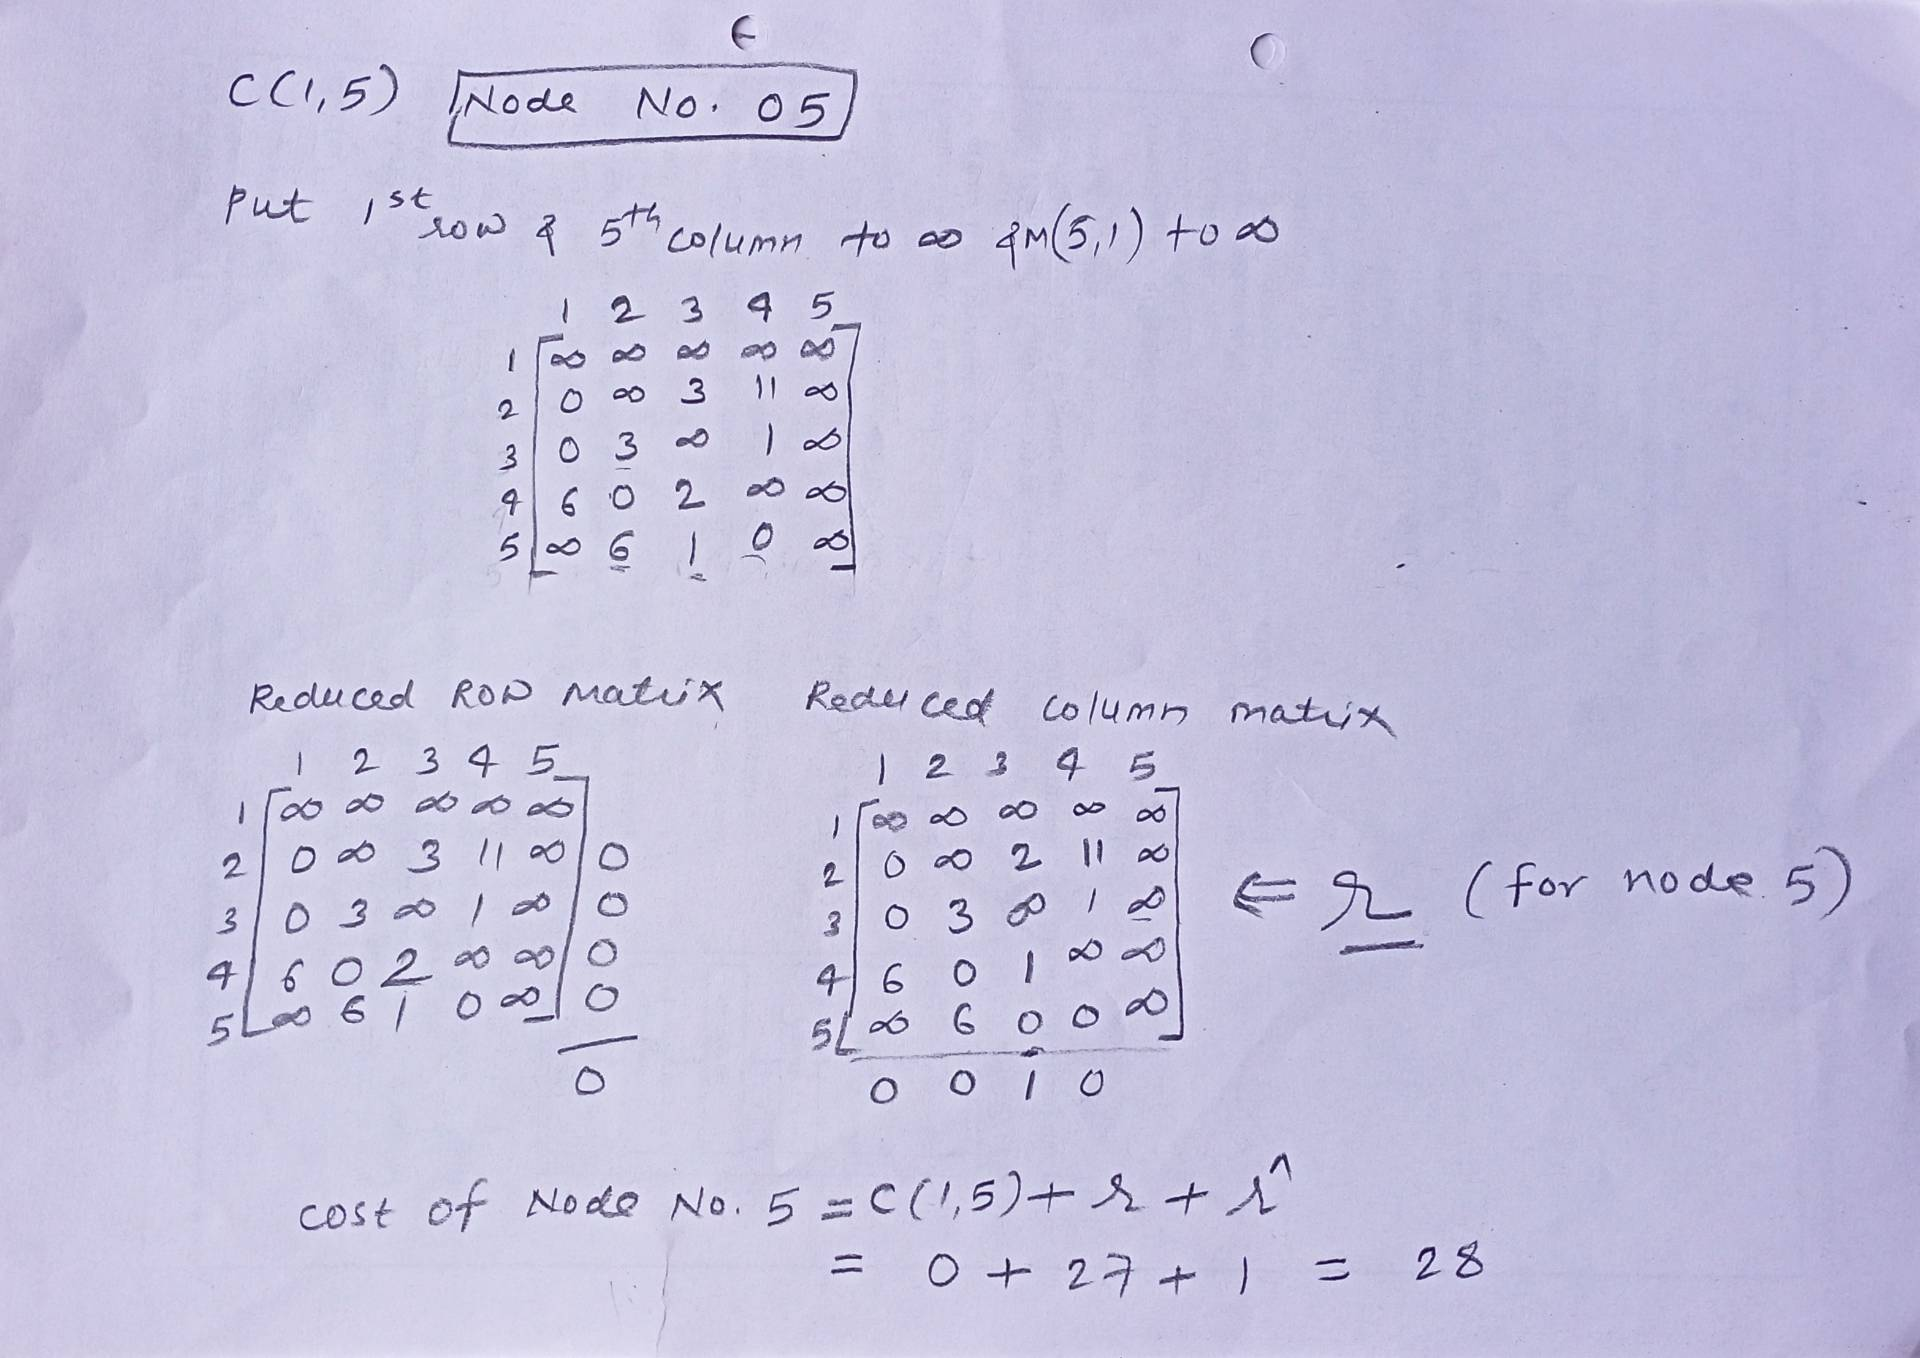 C(1,5) Node No. 05
Put 1st row & 5th column to ∞ & M(5,1) to ∞
1 2 3 4 5
1 ∞ ∞ ∞ ∞ ∞
2 0 ∞ 3 11 ∞
3 0 3 ∞ 1 ∞
4 6 0 2 ∞ ∞
5 ∞ 6 1 0 ∞
Reduced Row Matrix
1 2 3 4 5
1 ∞ ∞ ∞ ∞ ∞
2 0 ∞ 3 11 ∞ 0
3 0 3 ∞ 1 ∞ 0
4 6 0 2 ∞ ∞ 0
5 ∞ 6 1 0 ∞ 0
0
Reduced column matrix
1 2 3 4 5
1 ∞ ∞ ∞ ∞ ∞
2 0 ∞ 2 11 ∞
3 0 3 ∞ 1 ∞ ⇐ r (for node 5)
4 6 0 1 ∞ ∞
5 ∞ 6 0 0 ∞
0 0 1 0
cost of Node No. 5 = C(1,5) + r + r^
= 0 + 27 + 1 = 28